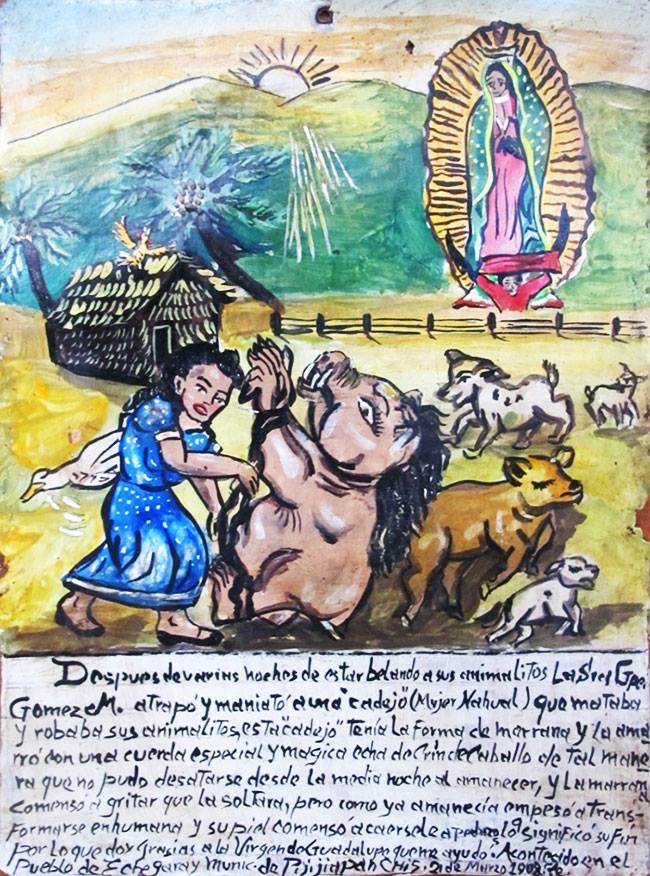 Despues de varias noches de estar belando a sus animalitos La Sra Gpe
Gomez M. atrapó y maniató a una "cadejo" (Mujer Nahual) que mataba
y robaba sus animalitos, esta "cadejo" tenía la forma de marrana y la ama
rró con una cuerda especial y magica echa de Crin de Caballo de tal mane
ra que no pudo desatarse desde la media noche al amanecer, y la marrana
comensó a gritar que la soltara, pero como ya amanecía empesó a trans-
formarse en humana y su piel comensó a caersele a pedazos lo significó su fin
por lo que doy gracias a la Virgen de Guadalupe que me ayudó. Acontecido en el
Pueblo de Echegaray Munic. de Pijijiapan Chis. 2 de Marzo